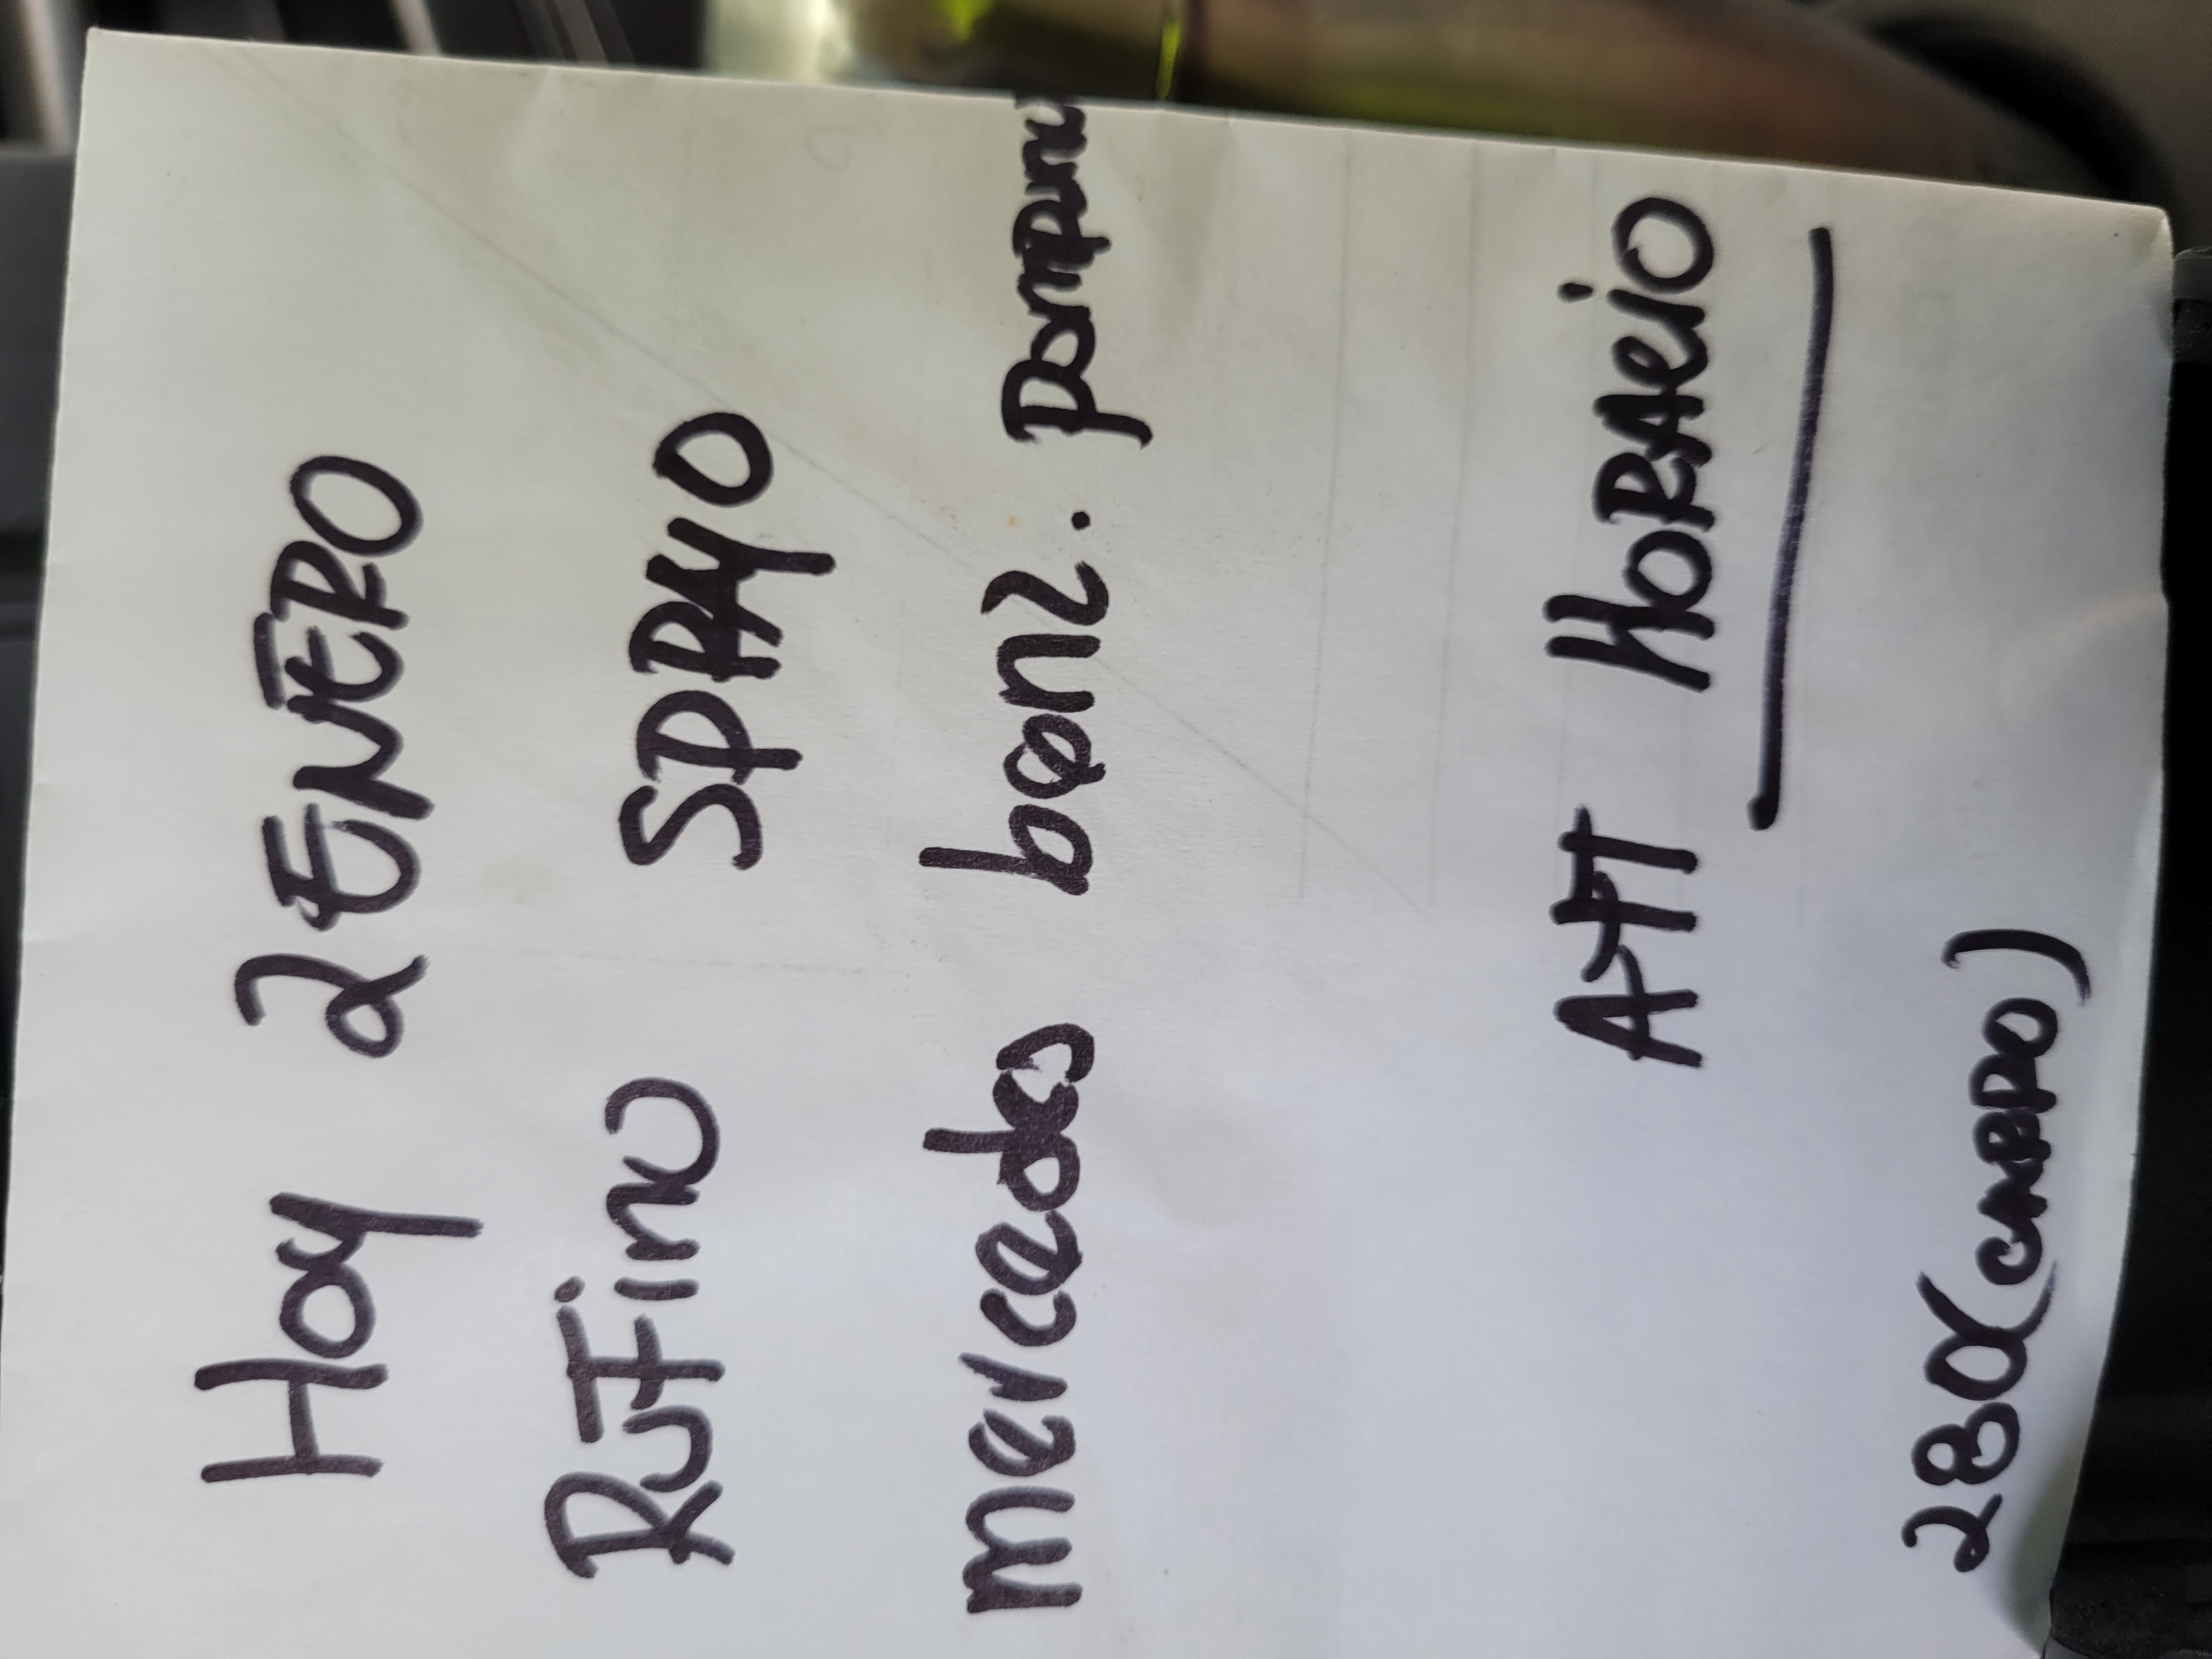 Hoy 2 ENERO
RuFino SPAYO
mercedes benz. pompano
ATT HORACIO
280 (CARRO)